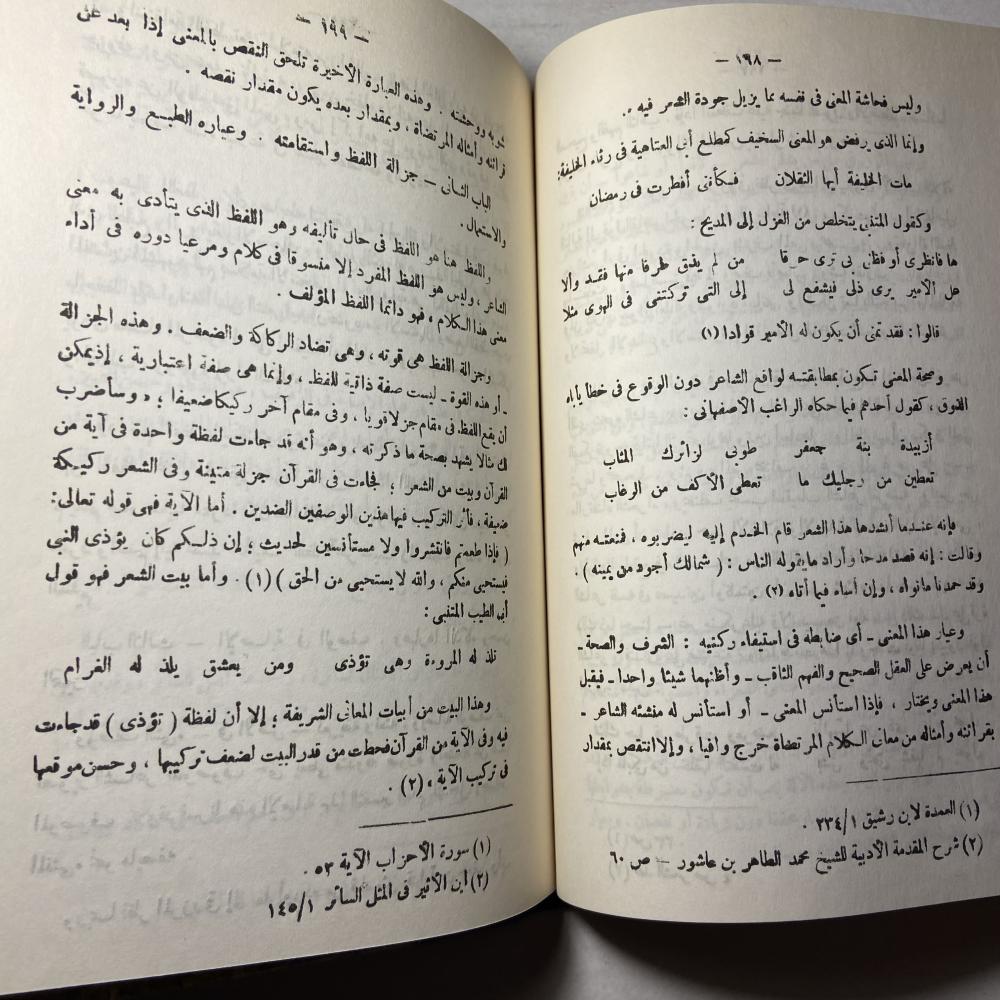 — ١٩٨ —
وليس فحاشة المعنى فى نفسه مما يزيل جودة الشعر فيه .
وإنما الذى يرفض هو المعنى السخيف كمطلع أبى العتاهية فى رثاء الخليفة:
مات الخليفة أيها الثقلان فكأننى أفطرت فى رمضان
وكقول المتنبى يتخلص من الغزل إلى المديح :
ها فانظرى أو فظنى بى ترى حرقا من لم يذق طرفا منها فقد وألا
عل الأمير يرى ذلى فيشفع لى إلى التى تركتنى فى الهوى مثلا
قالوا : فقد تمنى أن يكون له الأمير قوادا (١)
وصحة المعنى تكون بمطابقته لواقع الشاعر دون الوقوع فى خطأ يأباه
الذوق ، كقول أحدهم فيما حكاه الراغب الاصفهانى :
أزبيدة بنة جعفر طوبى لزائرك المثاب
تعطين من رجليك ما تعطى الأكف من الرغاب
فإنه عندما أنشدها هذا الشعر قام الخدم إليه ليضربوه ، فمنعته منهم
وقالت : إنه قصد مدحا وأراد ما يقوله الناس : ( شمالك أجود من يمينه ) :
وقد حمدنا ما نواه ، وإن أساء فيما أتاه (٢) .
وعيار هذا المعنى ـ أى ضابطه فى استيفاء ركنيه : الشرف والصحة ـ
أن يعرض على العقل الصحيح والفهم الثاقب ـ وأظنهما شيئا واحدا ـ فيقبل
هذا المعنى ويختار ، فإذا استأنس المعنى ـ أو استأنس له منشئه الشاعر ـ
بقرائنه وأمثاله من معانى الكلام المرتضاة خرج وافيا ، وإلا انتقص بمقدار
(١) العمدة لابن رشيق ٢٣٤/١ .
(٢) شرح المقدمة الأدبية للشيخ محمد الطاهر بن عاشور — ص ٦٠
— ١٩٩ —
شوبه ووحشته . وهذه العبارة الأخيرة تلحق النقص بالمعنى إذا بعد عن
قرائنه وأمثاله المرتضاة ، وبمقدار بعده يكون مقدار نقصه .
الباب الثانى — جزالة اللفظ واستقامته . وعياره الطبع والرواية
والاستعمال .
واللفظ هنا هو اللفظ فى حال تأليفه وهو اللفظ الذى يتأدى به معنى
الشاعر ، وليس هو اللفظ المفرد إلا منسوقا فى كلام ومرعيا دوره فى أداء
معنى هذا الكلام ، فهو دائما اللفظ المؤلف .
وجزالة اللفظ هى قوته ، وهى تضاد الركاكة والضعف . وهذه الجزالة
ـ أو هذه القوة ـ ليست صفة ذاتية للفظ ، وإنما هى صفة اعتبارية ، إذ يمكن
أن يقع اللفظ فى مقام جزلا قويا ، وفى مقام آخر ركيكا ضعيفا ؛ « وسأضرب
لك مثالا يشهد بصحة ما ذكرته ، وهو أنه قد جاءت لفظة واحدة فى آية من
القرآن وبيت من الشعر ؛ فجاءت فى القرآن جزلة متينة وفى الشعر ركيكة
ضعيفة ، فأثر التركيب فيها هذين الوصفين الضدين . أما الآية فهى قوله تعالى:
( فإذا طعمتم فانتشروا ولا مستأنسين لحديث ؛ إن ذلكم كان يؤذى النبى
فيستحيى منكم ، والله لا يستحيى من الحق ) (١) . وأما بيت الشعر فهو قول
أبى الطيب المتنبى :
تلذ له المروءة وهى تؤذى ومن يعشق يلذ له الغرام
وهذا البيت من أبيات المعانى الشريفة ؛ إلا أن لفظة ( تؤذى ) قد جاءت
فيه وفى الآية من القرآن فحطت من قدر البيت لضعف تركيبها ، وحسن موقعها
فى تركيب الآية » (٢) .
(١) سورة الأحزاب الآية ٥٣ .
(٢) ابن الأثير فى المثل السائر ١٤٥/١